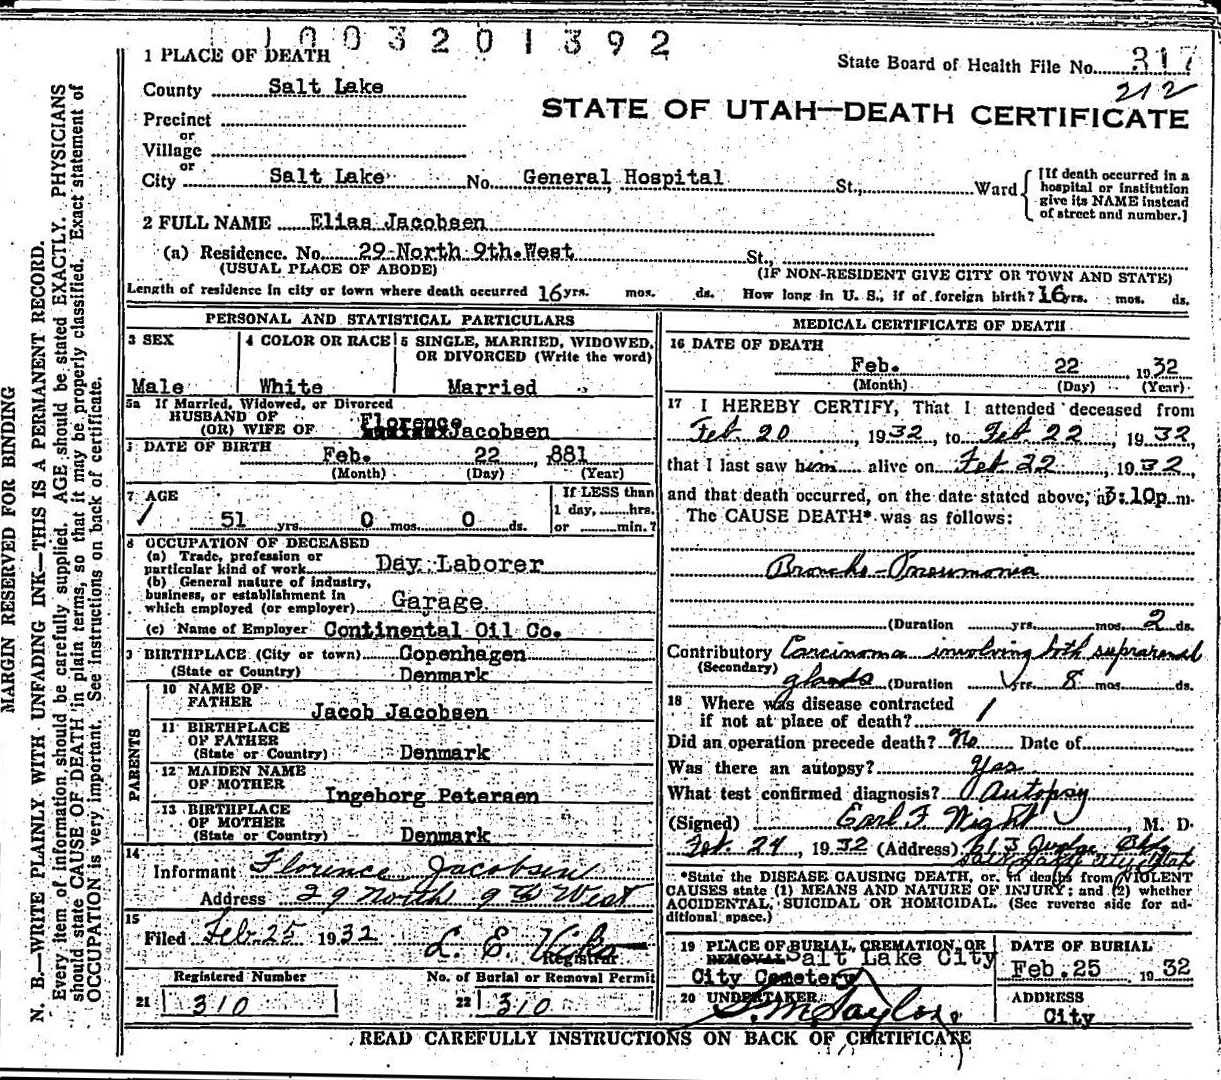 1003201392
1 PLACE OF DEATH
State Board of Health File No. 317
212
County Salt Lake
STATE OF UTAH—DEATH CERTIFICATE
Precinct
or
Village
or
City Salt Lake No. General Hospital St., Ward
[If death occurred in a hospital or institution give its NAME instead of street and number.]
2 FULL NAME Elias Jacobsen
(a) Residence. No. 29 North 9th. West St.,
(USUAL PLACE OF ABODE) (IF NON-RESIDENT GIVE CITY OR TOWN AND STATE)
Length of residence in city or town where death occurred 16 yrs. mos. ds. How long in U. S., if of foreign birth? 16 yrs. mos. ds.
PERSONAL AND STATISTICAL PARTICULARS
3 SEX
Male
4 COLOR OR RACE
White
5 SINGLE, MARRIED, WIDOWED,
OR DIVORCED (Write the word)
Married
5a If Married, Widowed, or Divorced
HUSBAND OF
(OR) WIFE OF Florence Jacobsen
DATE OF BIRTH
Feb. 22 881
(Month) (Day) (Year)
7 AGE
51 yrs. 0 mos. 0 ds.
If LESS than
1 day, hrs.
or min.?
8 OCCUPATION OF DECEASED
(a) Trade, profession or
particular kind of work Day Laborer
(b) General nature of industry,
business, or establishment in
which employed (or employer) Garage
(c) Name of Employer Continental Oil Co.
9 BIRTHPLACE (City or town) Copenhagen
(State or Country) Denmark
PARENTS
10 NAME OF
FATHER Jacob Jacobsen
11 BIRTHPLACE
OF FATHER
(State or Country) Denmark
12 MAIDEN NAME
OF MOTHER Ingeborg Petersen
13 BIRTHPLACE
OF MOTHER
(State or Country) Denmark
14
Informant Florence Jacobsen
Address 29 North 9th West
15
Filed Feb. 25 1932 L. E. Viko
Registrar
Registered Number
21 310
No. of Burial or Removal Permit
22 310
MEDICAL CERTIFICATE OF DEATH
16 DATE OF DEATH
Feb. 22, 1932
(Month) (Day) (Year)
17 I HEREBY CERTIFY, That I attended deceased from
Feb 20, 1932, to Feb 22, 1932,
that I last saw him alive on Feb 22, 1932,
and that death occurred, on the date stated above, a 3:10p m.
The CAUSE DEATH* was as follows:
Broncho-Pneumonia
(Duration yrs. mos. 2 ds.
Contributory Carcinoma involving both suprarenal
(Secondary) glands (Duration yrs. 8 mos. ds.
18 Where was disease contracted
if not at place of death?
Did an operation precede death? No Date of
Was there an autopsy? Yes
What test confirmed diagnosis? Autopsy
(Signed) Earl F Wight M. D.
Feb. 24, 1932 (Address) 613 Judge Bldg
Salt Lake City Utah
*State the DISEASE CAUSING DEATH, or, in deaths from VIOLENT
CAUSES state (1) MEANS AND NATURE OF INJURY; and (2) whether
ACCIDENTAL, SUICIDAL OR HOMICIDAL. (See reverse side for ad-
ditional space.)
19 PLACE OF BURIAL, CREMATION, OR
REMOVAL Salt Lake City
City Cemetery
DATE OF BURIAL
Feb. 25 1932
20 UNDERTAKER
S. M. Taylor
ADDRESS
City
READ CAREFULLY INSTRUCTIONS ON BACK OF CERTIFICATE
MARGIN RESERVED FOR BINDING
N. B.—WRITE PLAINLY WITH UNFADING INK—THIS IS A PERMANENT RECORD.
Every item of information should be carefully supplied. AGE should be stated EXACTLY. PHYSICIANS
should state CAUSE OF DEATH in plain terms, so that it may be properly classified. Exact statement of
OCCUPATION is very important. See instructions on back of certificate.